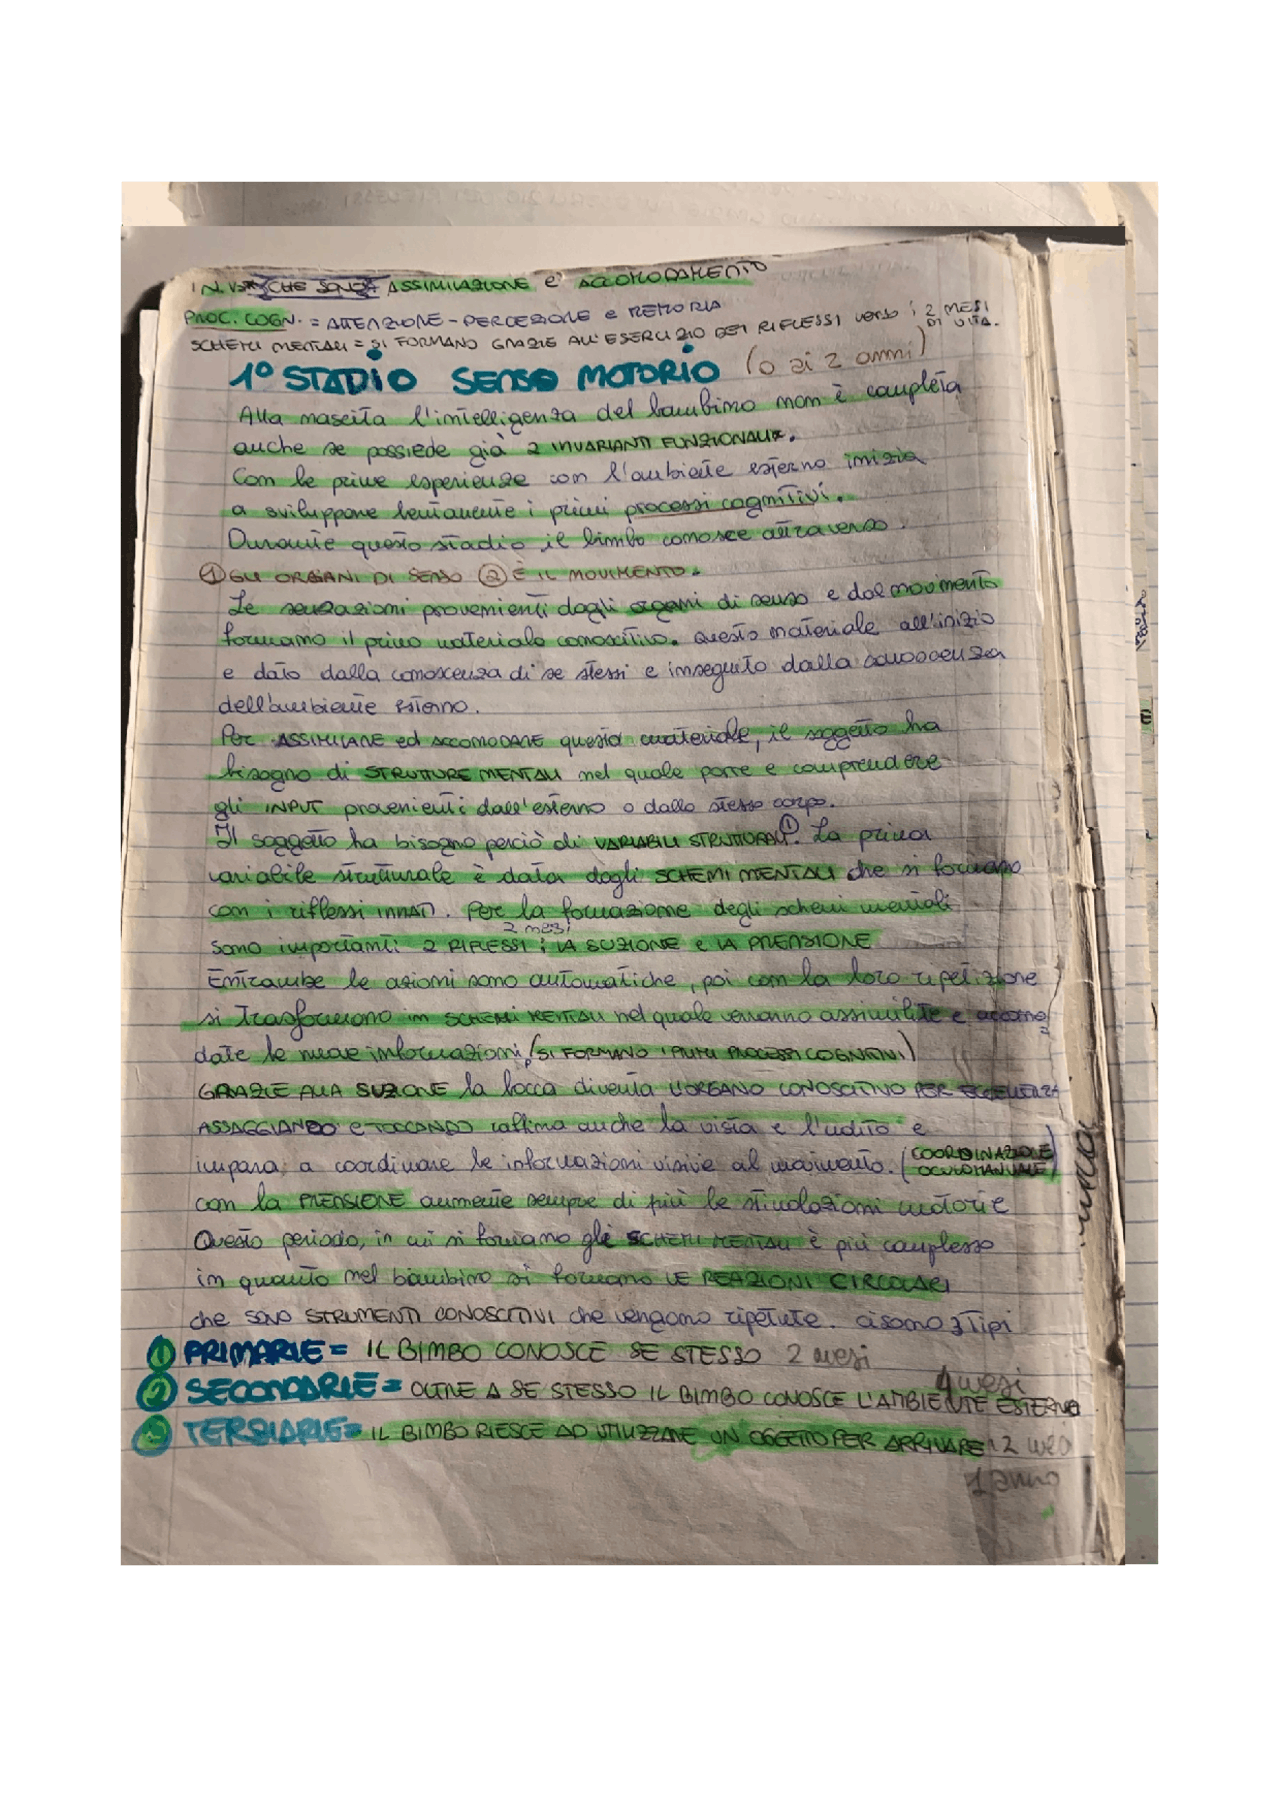 ASSIMILAZIONE e' ACCOMODAMENTO
PROC. COGN. = ATTENZIONE - PERCEZIONE e MEMORIA
SCHEMI MENTALI = SI FORMANO GRAZIE ALL'ESERCIZIO DEI RIFLESSI verso i 2 MESI DI VITA.
1° STADIO SENSO MOTORIO (0 ai 2 anni)
Alla nascita l'intelligenza del bambino non è completa
anche se possiede già 2 INVARIANTI FUNZIONALI.
Con le prime esperienze con l'ambiente esterno inizia
a sviluppare lentamente i primi processi cognitivi.
Durante questo stadio il bimbo conosce attraverso.
① GLI ORGANI DI SENSO ② È IL MOVIMENTO.
Le sensazioni provenienti dagli organi di senso e dal movimento
formano il primo materiale conoscitivo. Questo materiale all'inizio
e dato dalla conoscenza di se stessi e inseguito dalla conoscenza
dell'ambiente esterno.
Per ASSIMILARE ed ACCOMODARE questo materiale, il soggetto ha
bisogno di STRUTTURE MENTALI nel quale porre e comprendere
gli INPUT provenienti dall'esterno o dallo stesso corpo.
Il soggetto ha bisogno perciò di VARIABILI STRUTTURALI①. La prima
variabile strutturale è data dagli SCHEMI MENTALI che si formano
con i riflessi INNATI. Per la formazione degli schemi mentali
2 mesi
sono importanti 2 RIFLESSI: LA SUZIONE e LA PRENSIONE
Entrambe le azioni sono automatiche, poi con la loro ripetizione
si trasformano in SCHEMI MENTALI nel quale verranno assimilate e accomo
date le nuove informazioni, (SI FORMANO I PRIMI PROCESSI COGNITIVI)
GRAZIE ALLA SUZIONE la bocca diventa L'ORGANO CONOSCITIVO PER ECCELLENZA
ASSAGGIANDO e TOCCANDO raffina anche la vista e l'udito e
impara, a coordinare le informazioni visive al movimento. (COORDINAZIONE
OCULOMANUALE)
con la PRENSIONE aumente sempre di più le stimolazioni motorie
Questo periodo, in cui si formano gli SCHEMI MENTALI è più complesso
in quanto nel bambino si formano LE REAZIONI CIRCOLARI
che sono STRUMENTI CONOSCITIVI che vengono ripetute. cisono 3 Tipi
① PRIMARIE = IL BIMBO CONOSCE SE STESSO 2 mesi
4 mesi
② SECONDARIE = OLTRE A SE STESSO IL BIMBO CONOSCE L'AMBIENTE ESTERNO
TERZIARIE = IL BIMBO RIESCE AD UTILIZZARE UN OGGETTO PER ARRIVARE 12
1 anno